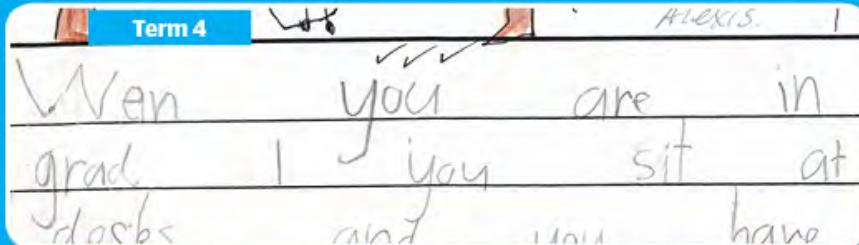 Term 4
Alexis.
Wen you are in
grad 1 you sit at
desks and you have